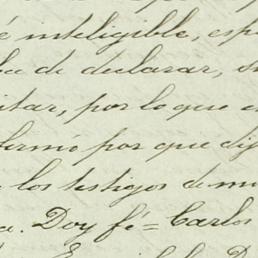 é inteligible, esp
ba de declarar, s
itar, por lo que e
fermó por que dij
los testigos de mi
a. Doy fé = Carlos